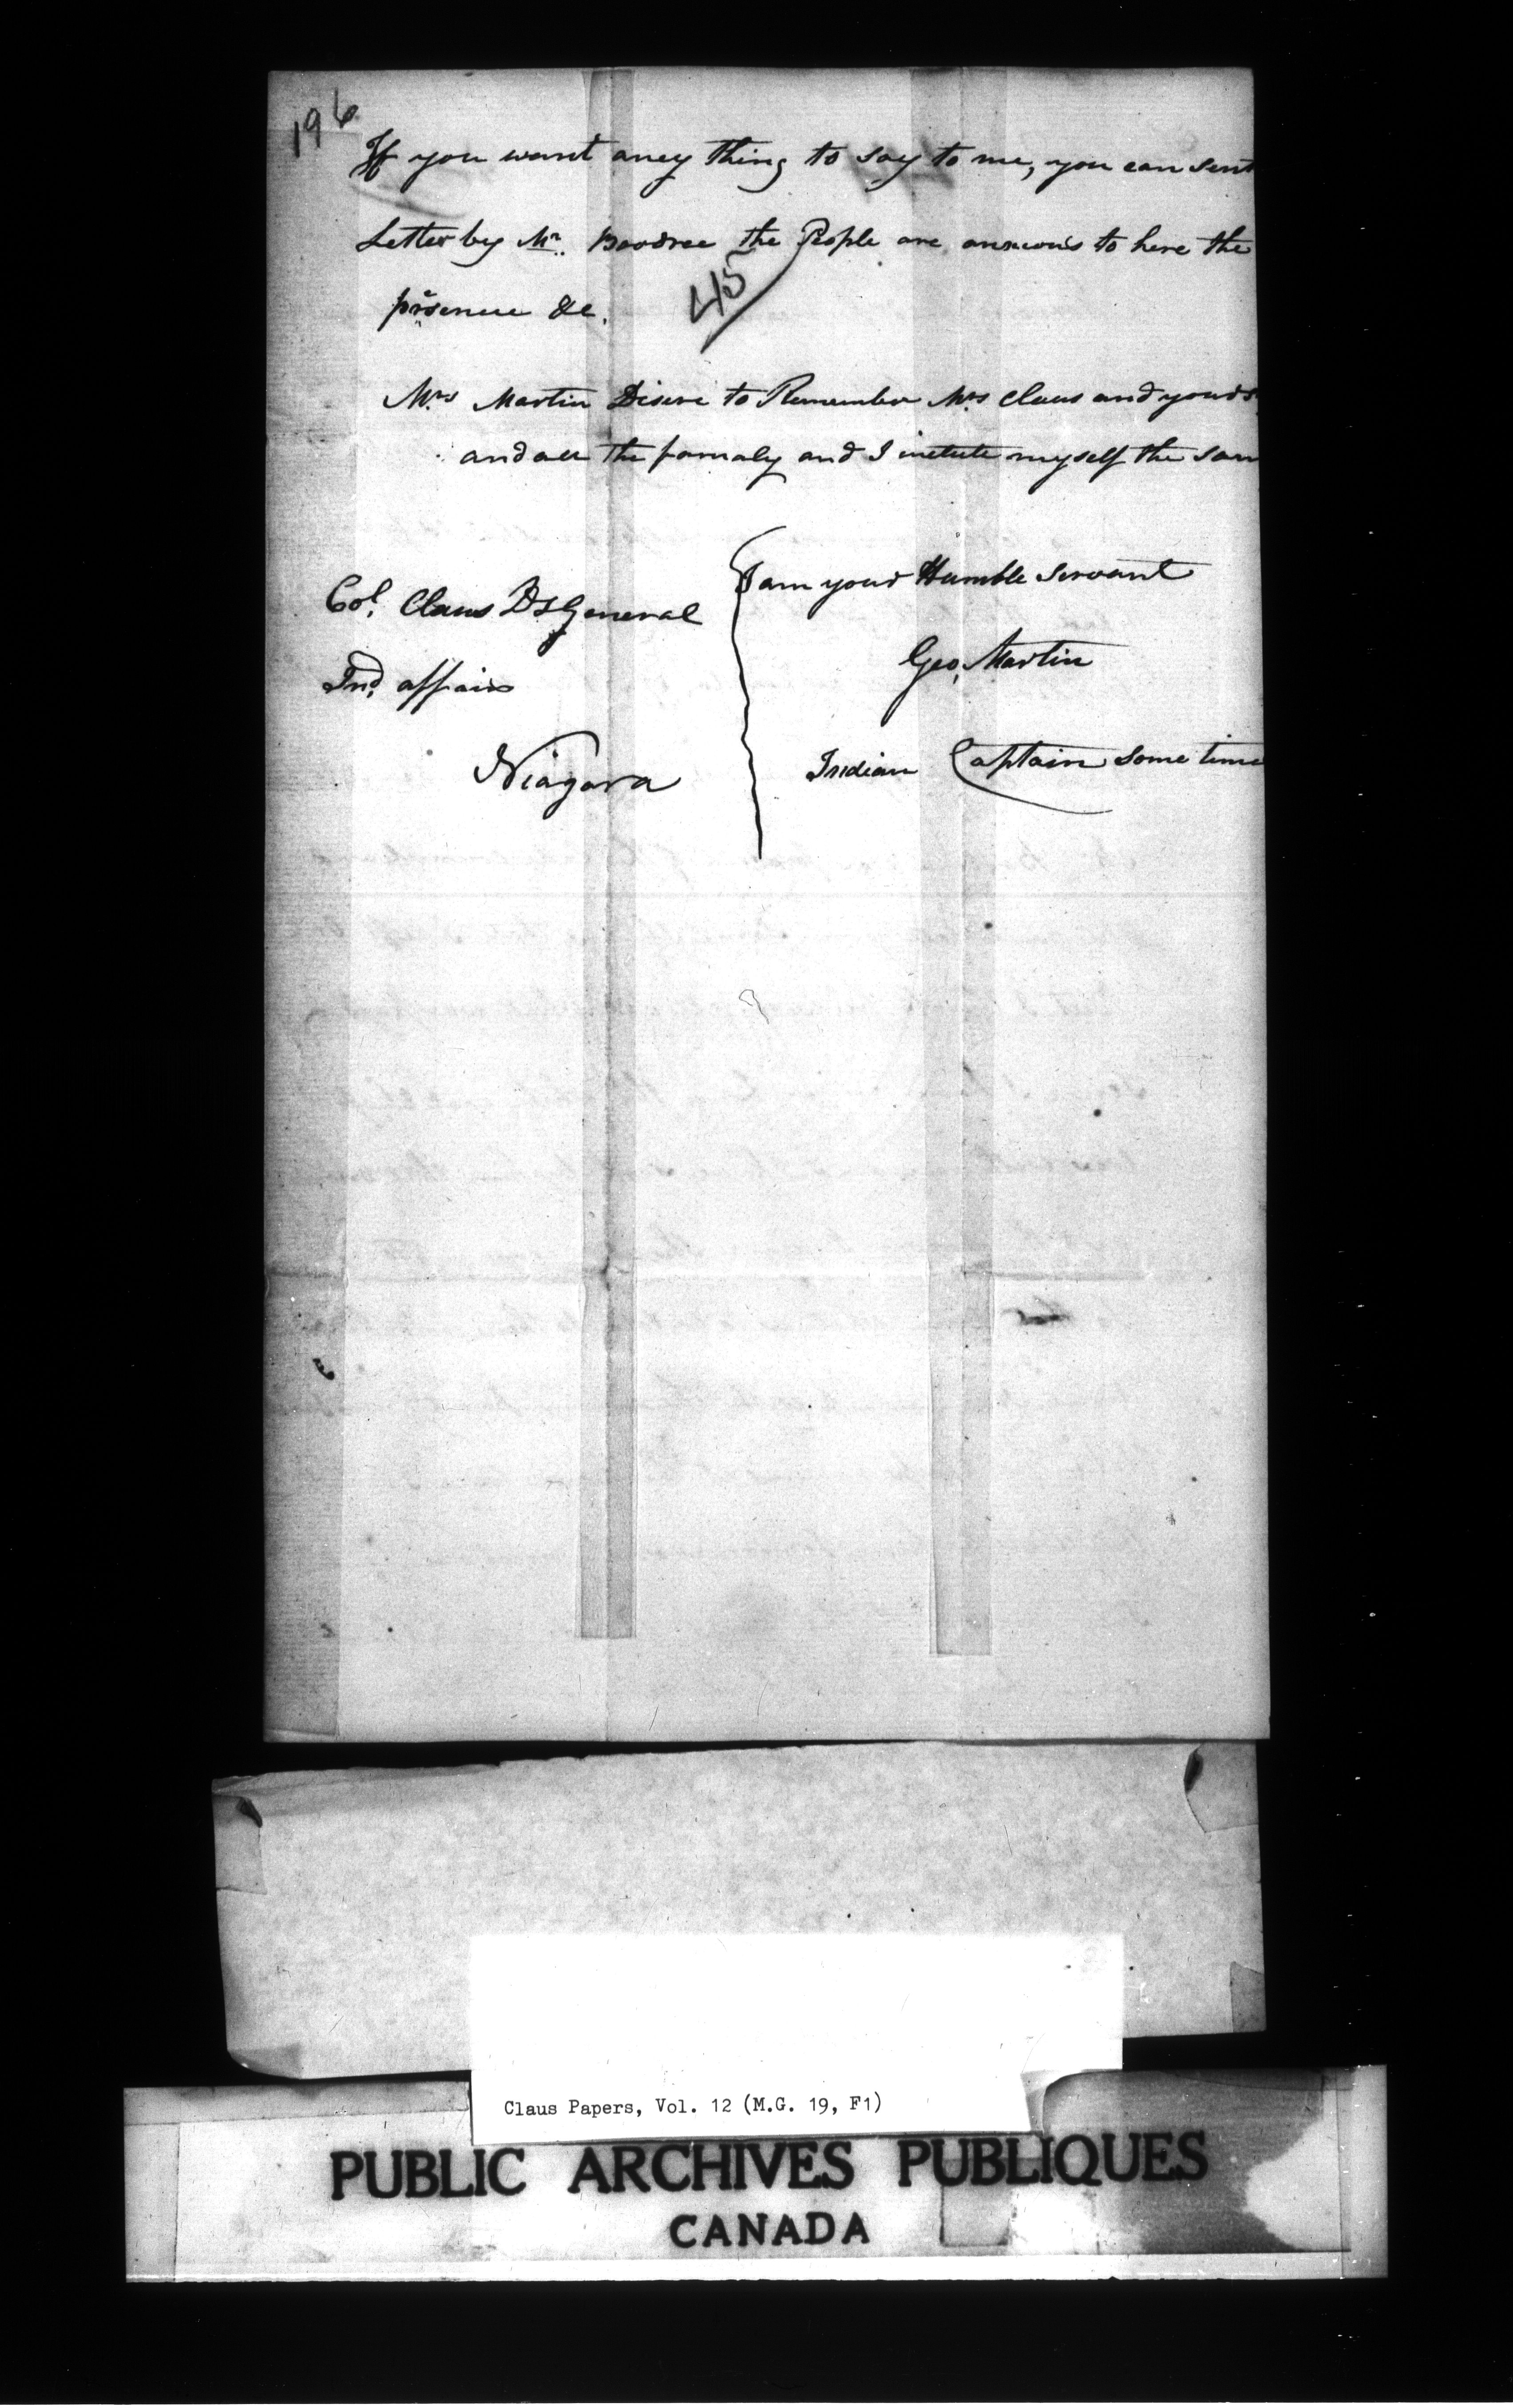 196
If you want aney thing to say to me, you can sent
Letter by Mr. the People are anxious to here the
&c.
45
Mrs Martin Disire to Remember Mrs Claus and yours
and all the famaly and I myself the sam
I am your Humble Servant
Col. Claus D I General
Geo, Martin
Ind. affairs
Niagara
Indian Captain some time
Claus Papers, Vol. 12 (M.G. 19, F1)
PUBLIC ARCHIVES PUBLIQUES
CANADA